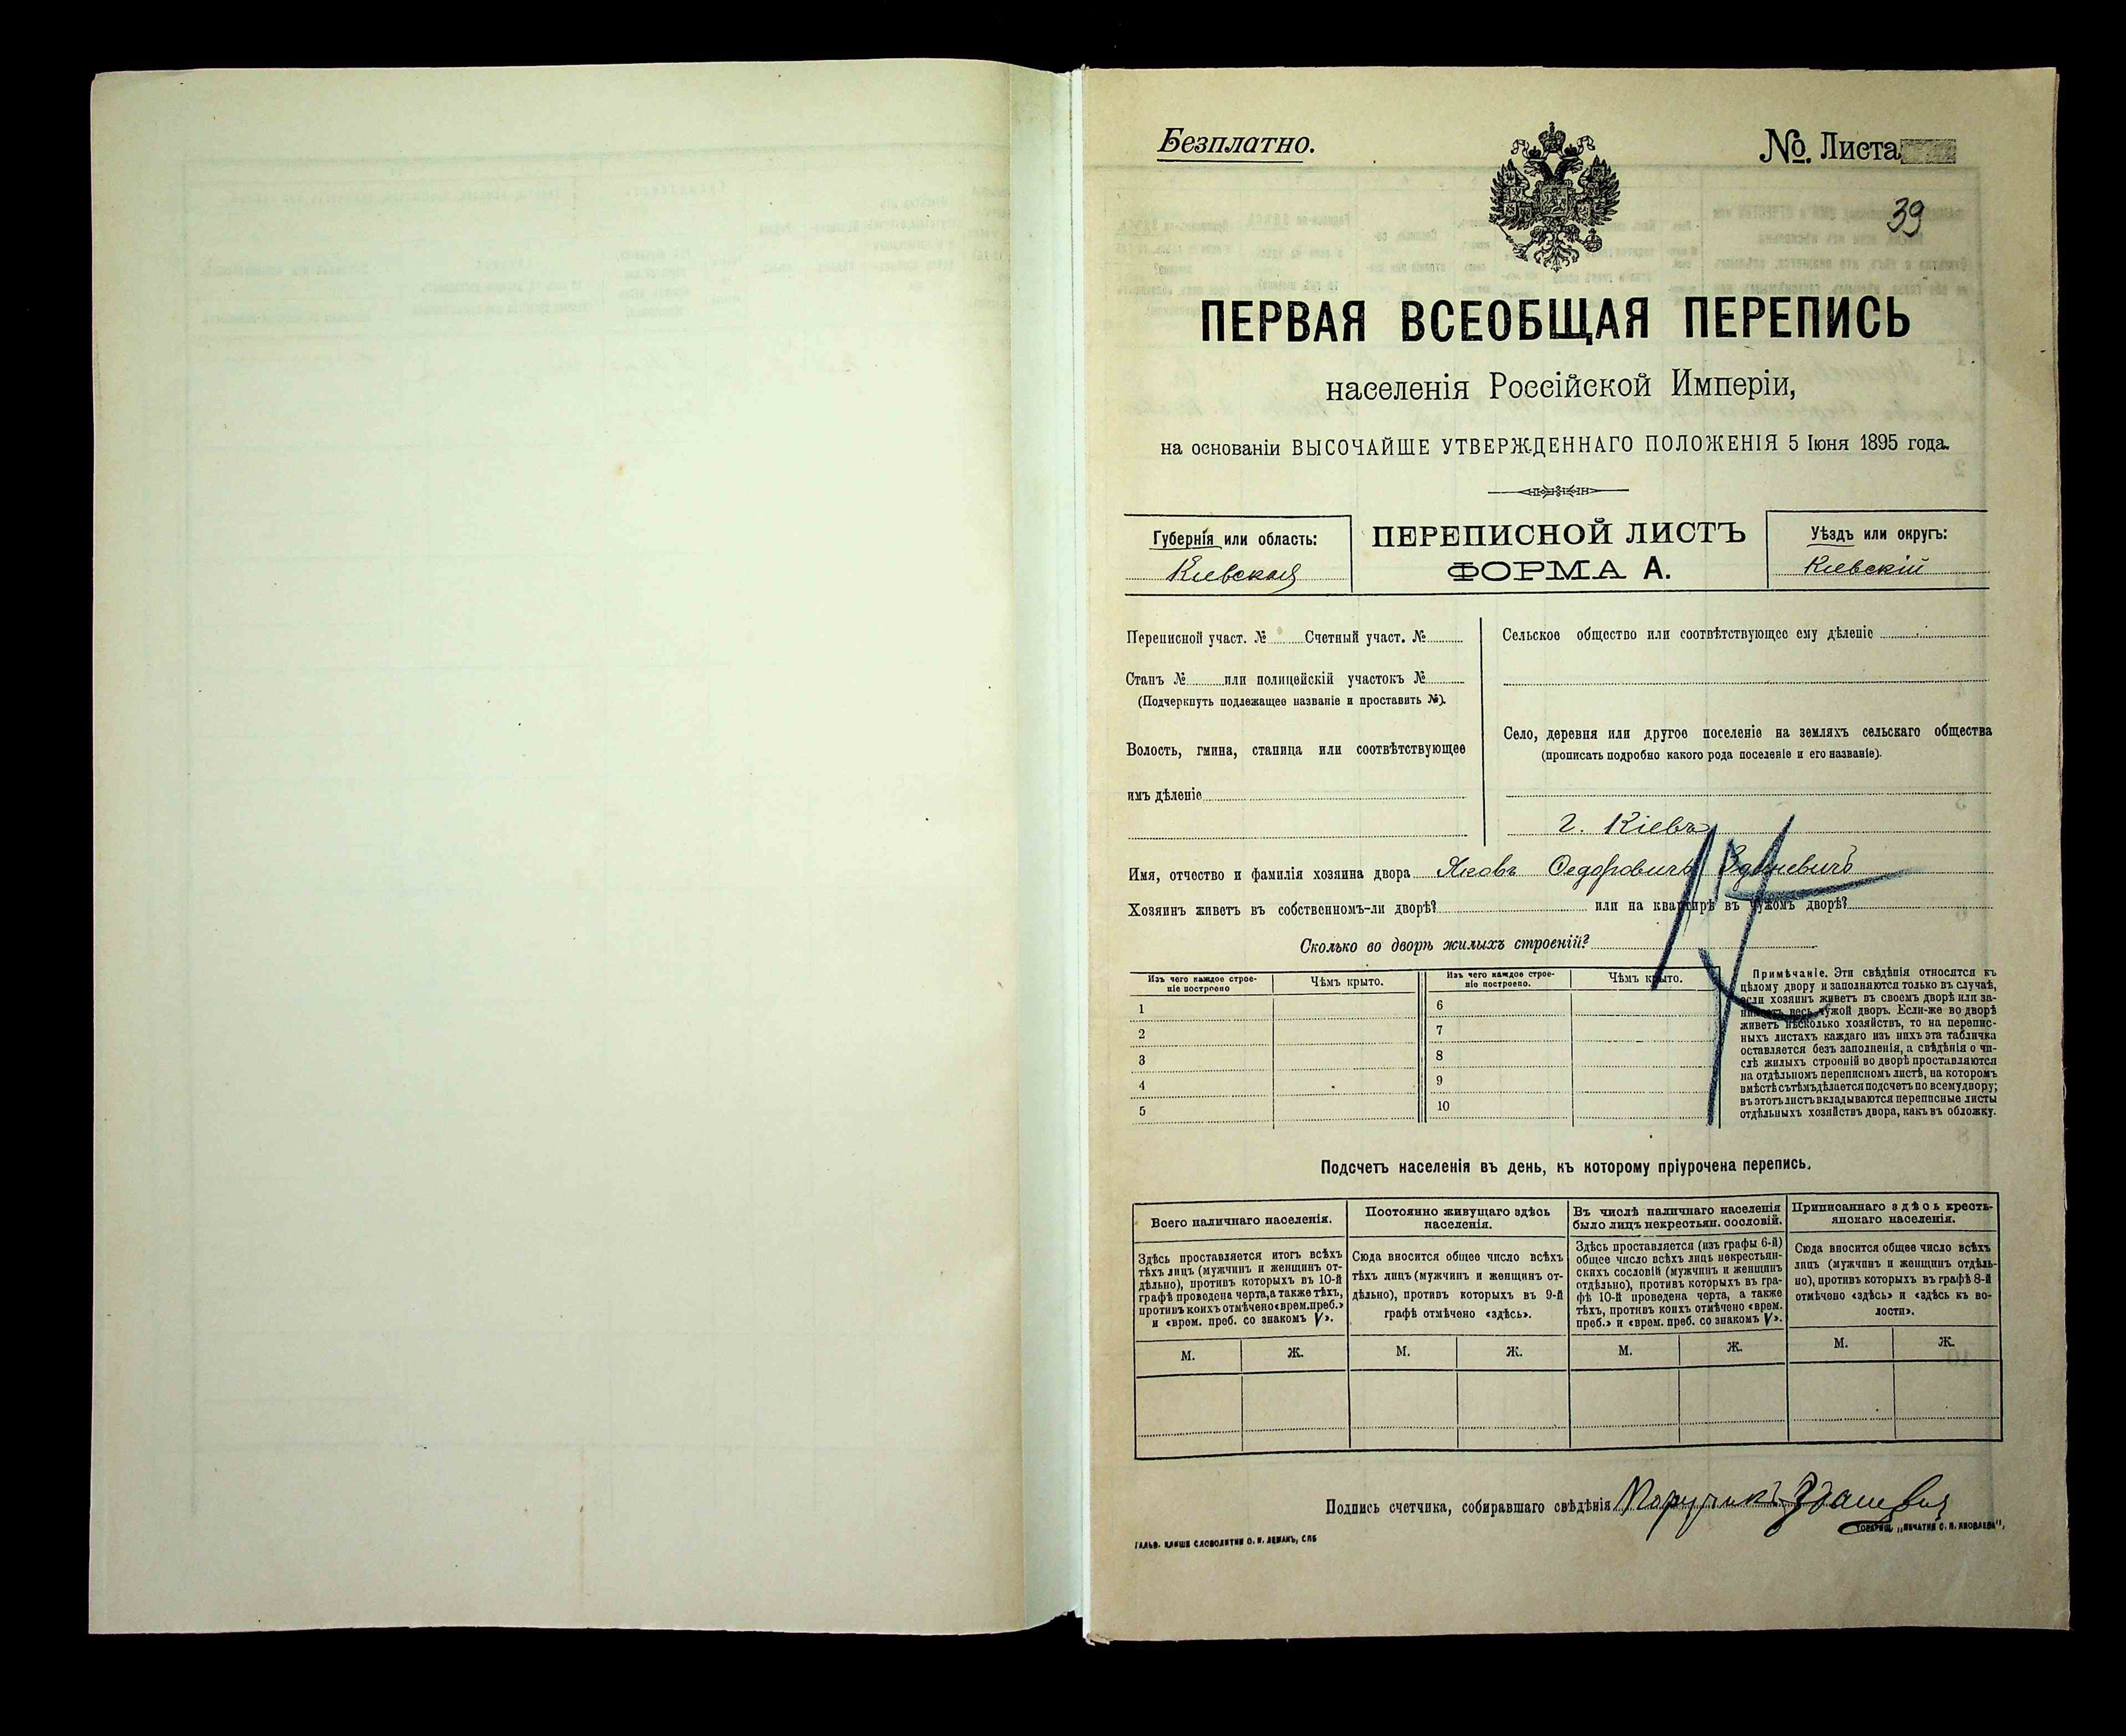 Безплатно.
№. Листа
39
ПЕРВАЯ ВСЕОБЩАЯ ПЕРЕПИСЬ
населенія Россійской Имперіи,
на основаніи ВЫСОЧАЙШЕ УТВЕРЖДЕННАГО ПОЛОЖЕНІЯ 5 Іюня 1895 года.
Губернія или область:
Кіевская
ПЕРЕПИСНОЙ ЛИСТЪ
ФОРМА А.
Уѣздъ или округъ:
Кіевскій
Переписной участ. № Счетный участ. №
Станъ № или полицейскій участокъ №
(Подчеркнуть подлежащее названіе и проставить №).
Волость, гмина, станица или соотвѣтствующее
имъ дѣленіе
Сельское общество или соотвѣтствующее ему дѣленіе
Село, деревня или другое поселеніе на земляхъ сельскаго общества
(прописать подробно какого рода поселеніе и его названіе).
г. Кіевъ
Имя, отчество и фамилія хозяина двора Яковъ Ѳедоровичъ
Хозяинъ живетъ въ собственномъ-ли дворѣ? или на квартирѣ въ чужомъ дворѣ?
Сколько во дворѣ жилыхъ строеній?
Изъ чего каждое строе-
ніе построено
Чѣмъ крыто.
Изъ чего каждое строе-
ніе построено.
Чѣмъ крыто.
1
2
3
4
5
6
7
8
9
10
Примѣчаніе. Эти свѣдѣнія относятся къ
цѣлому двору и заполняются только въ случаѣ,
если хозяинъ живетъ въ своемъ дворѣ или за-
нимаетъ весь чужой дворъ. Если-же во дворѣ
живетъ нѣсколько хозяйствъ, то на перепис-
ныхъ листахъ каждаго изъ нихъ эта табличка
оставляется безъ заполненія, а свѣдѣнія о чи-
слѣ жилыхъ строеній во дворѣ проставляются
на отдѣльномъ переписномъ листѣ, на которомъ
вмѣстѣ съ тѣмъ дѣлается подсчетъ по всему двору;
въ этотъ листъ вкладываются переписные листы
отдѣльныхъ хозяйствъ двора, какъ въ обложку.
Подсчетъ населенія въ день, къ которому пріурочена перепись.
Всего наличнаго населенія.
Здѣсь проставляется итогъ всѣхъ
тѣхъ лицъ (мужчинъ и женщинъ от-
дѣльно), противъ которыхъ въ 10-й
графѣ проведена черта, а также тѣхъ,
противъ коихъ отмѣчено «врем. преб.»
и «врем. преб. со знакомъ V».
Постоянно живущаго здѣсь
населенія.
Сюда вносится общее число всѣхъ
тѣхъ лицъ (мужчинъ и женщинъ от-
дѣльно), противъ которыхъ въ 9-й
графѣ отмѣчено «здѣсь».
Въ числѣ наличнаго населенія
было лицъ некрестьян. сословій.
Здѣсь проставляется (изъ графы 6-й)
общее число всѣхъ лицъ некрестьян-
скихъ сословій (мужчинъ и женщинъ
отдѣльно), противъ которыхъ въ гра-
фѣ 10-й проведена черта, а также
тѣхъ, противъ коихъ отмѣчено «врем.
преб.» и «врем. преб. со знакомъ V».
Приписаннаго здѣсь кресть-
янскаго населенія.
Сюда вносится общее число всѣхъ
лицъ (мужчинъ и женщинъ отдѣль-
но), противъ которыхъ въ графѣ 8-й
отмѣчено «здѣсь» и «здѣсь къ во-
лости».
М. Ж. М. Ж. М. Ж. М. Ж.
Подпись счетчика, собиравшаго свѣдѣнія Поручикъ
ГАЛЬВ. КЛИШЕ СЛОВОЛИТНИ О. И. ЛЕМАНЪ, СПБ
ТОВАРИЩ. „ПЕЧАТНЯ С. П. ЯКОВЛЕВА“,